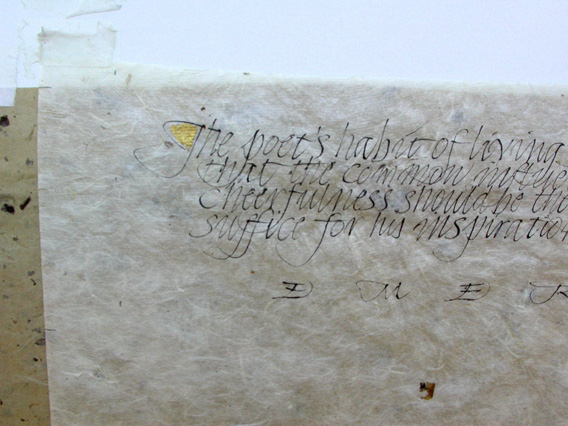 The poet's habit of living
that the common
cheerfulness should be the
suffice for his inspiratio
E M E R